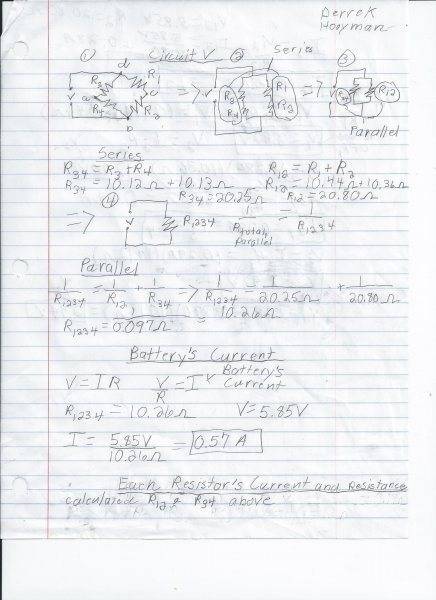 Derrek
Hooyman
Circuit V
① ② Series ③
d
R3 R1
V a c
R4 R2
b
=> V R3 R4 R1 R2
=> V R34 R12
Parallel
Series
R34 = R3 + R4 R12 = R1 + R2
R34 = 10.12Ω + 10.13Ω R12 = 10.44Ω + 10.36Ω
R34 = 20.25Ω R12 = 20.80Ω
=> ④ V R1234 1/Rtotal parallel = 1/R1234
Parallel
1/R1234 = 1/R12 + 1/R34 => 1/R1234 = 1/20.25Ω + 1/20.80Ω
R1234 = 0.097Ω = 10.26Ω
Battery's Current
V = IR V/R = I Battery's Current
R1234 = 10.26Ω V = 5.85V
I = 5.85V/10.26Ω = 0.57 A
Each Resistor's Current and Resistance
calculated R12 & R34 above